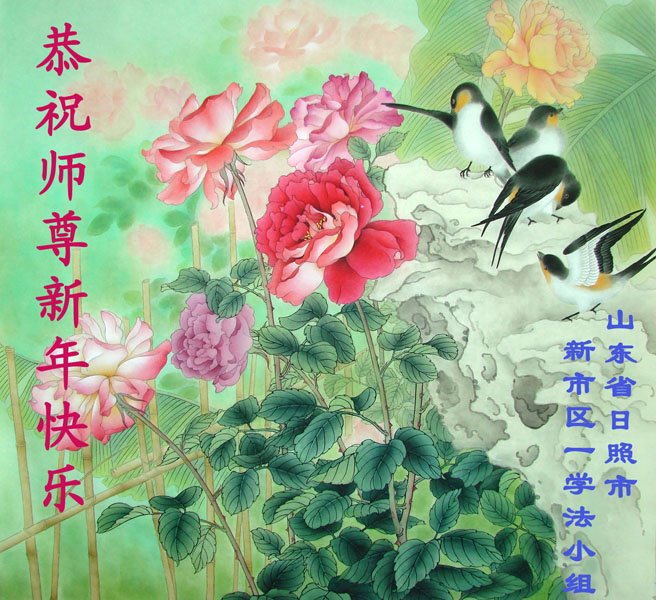 恭祝师尊新年快乐
山东省日照市
新市区一学法小组